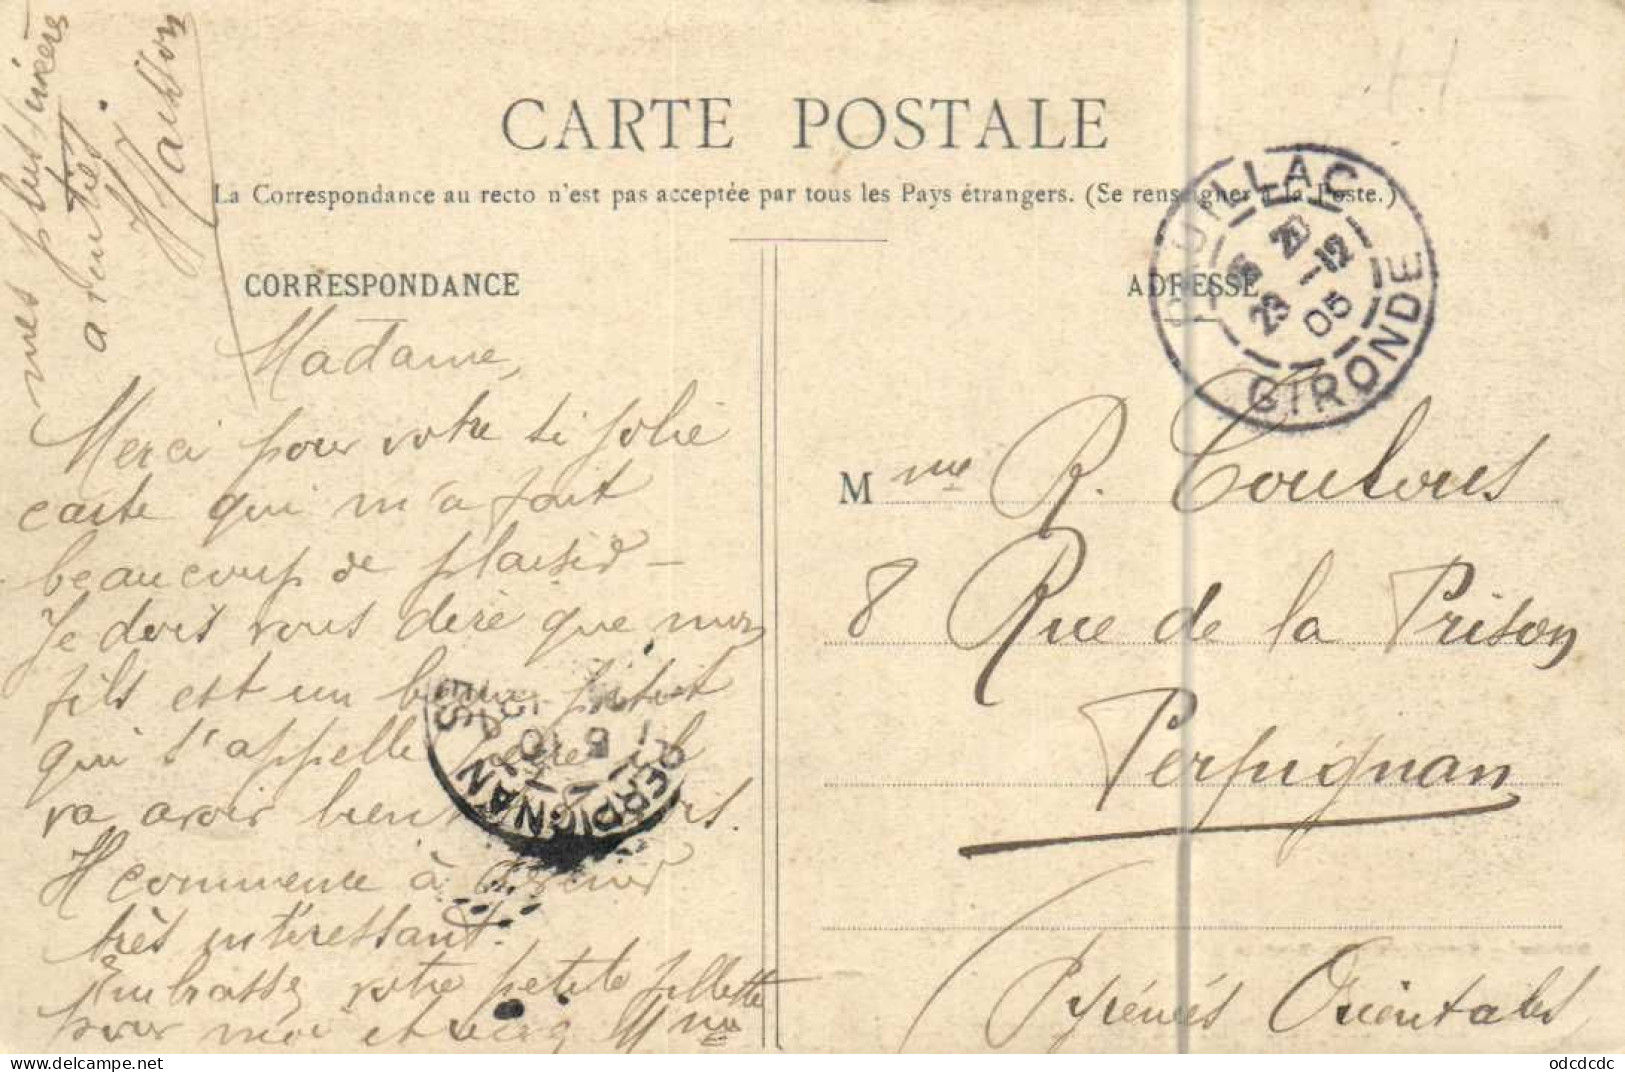 CARTE POSTALE
La Correspondance au recto n'est pas acceptée par tous les Pays étrangers. (Se renseigner à la Poste.)
CORRESPONDANCE
Madame,
Merci pour votre si jolie
carte qui m'a fait
beaucoup de plaisir _
Je dois vous dire que mon
fils est un beau petit
qui s'appelle
va avoir bient
Il commence à devenir
très intéressant.
Embrassez votre petite fillette
pour moi et Mme
mes plus sincères
amitiés.
ADRESSE
Mme R. Coulous
8 Rue de la Prison
Perpignan
Pyrénées Orientales
PAUILLAC
20
23 -12
05
GIRONDE
PERPIGNAN
odcdcdc